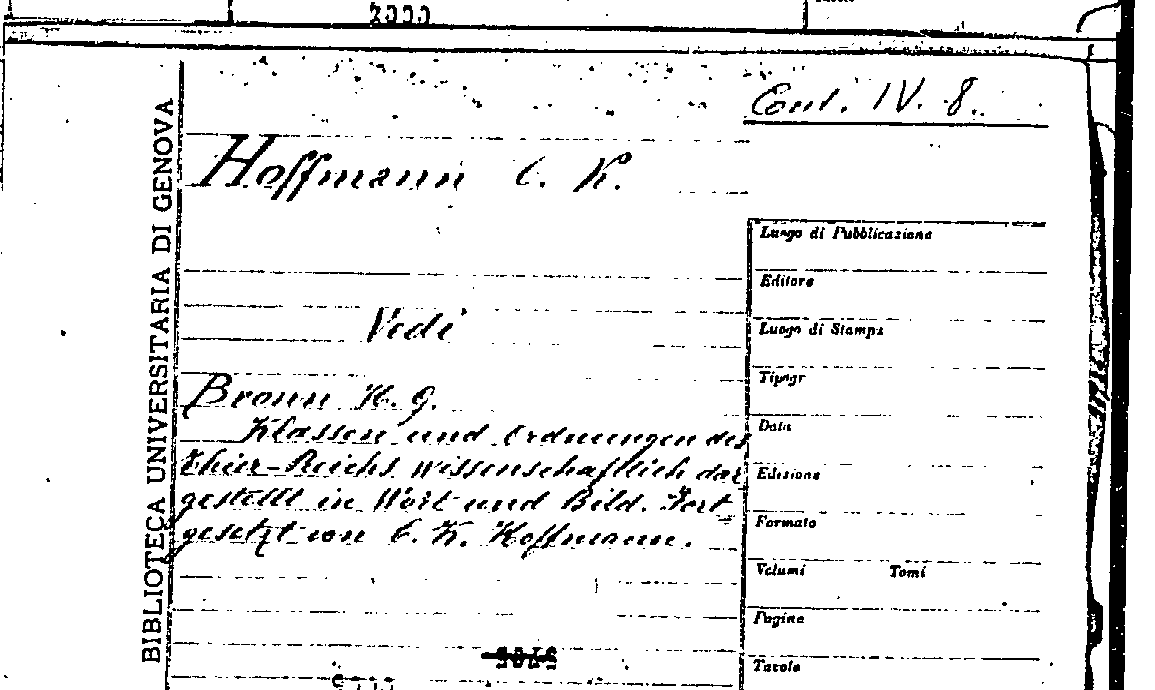 2000
Cont. IV. 8.
BIBLIOTECA UNIVERSITARIA DI GENOVA
Hoffmann C. K.
Vedi
Bronn H. G.
Klassen und Ordnungen des
Thier-Reichs wissenschaftlich dar
gestellt in Wort und Bild. Fort
gesetzt von C. K. Hoffmann.
Luogo di Pubblicazione
Editore
Luogo di Stampa
Tipogr
Data
Edizione
Formato
Volumi Tomi
Pagine
Tavole